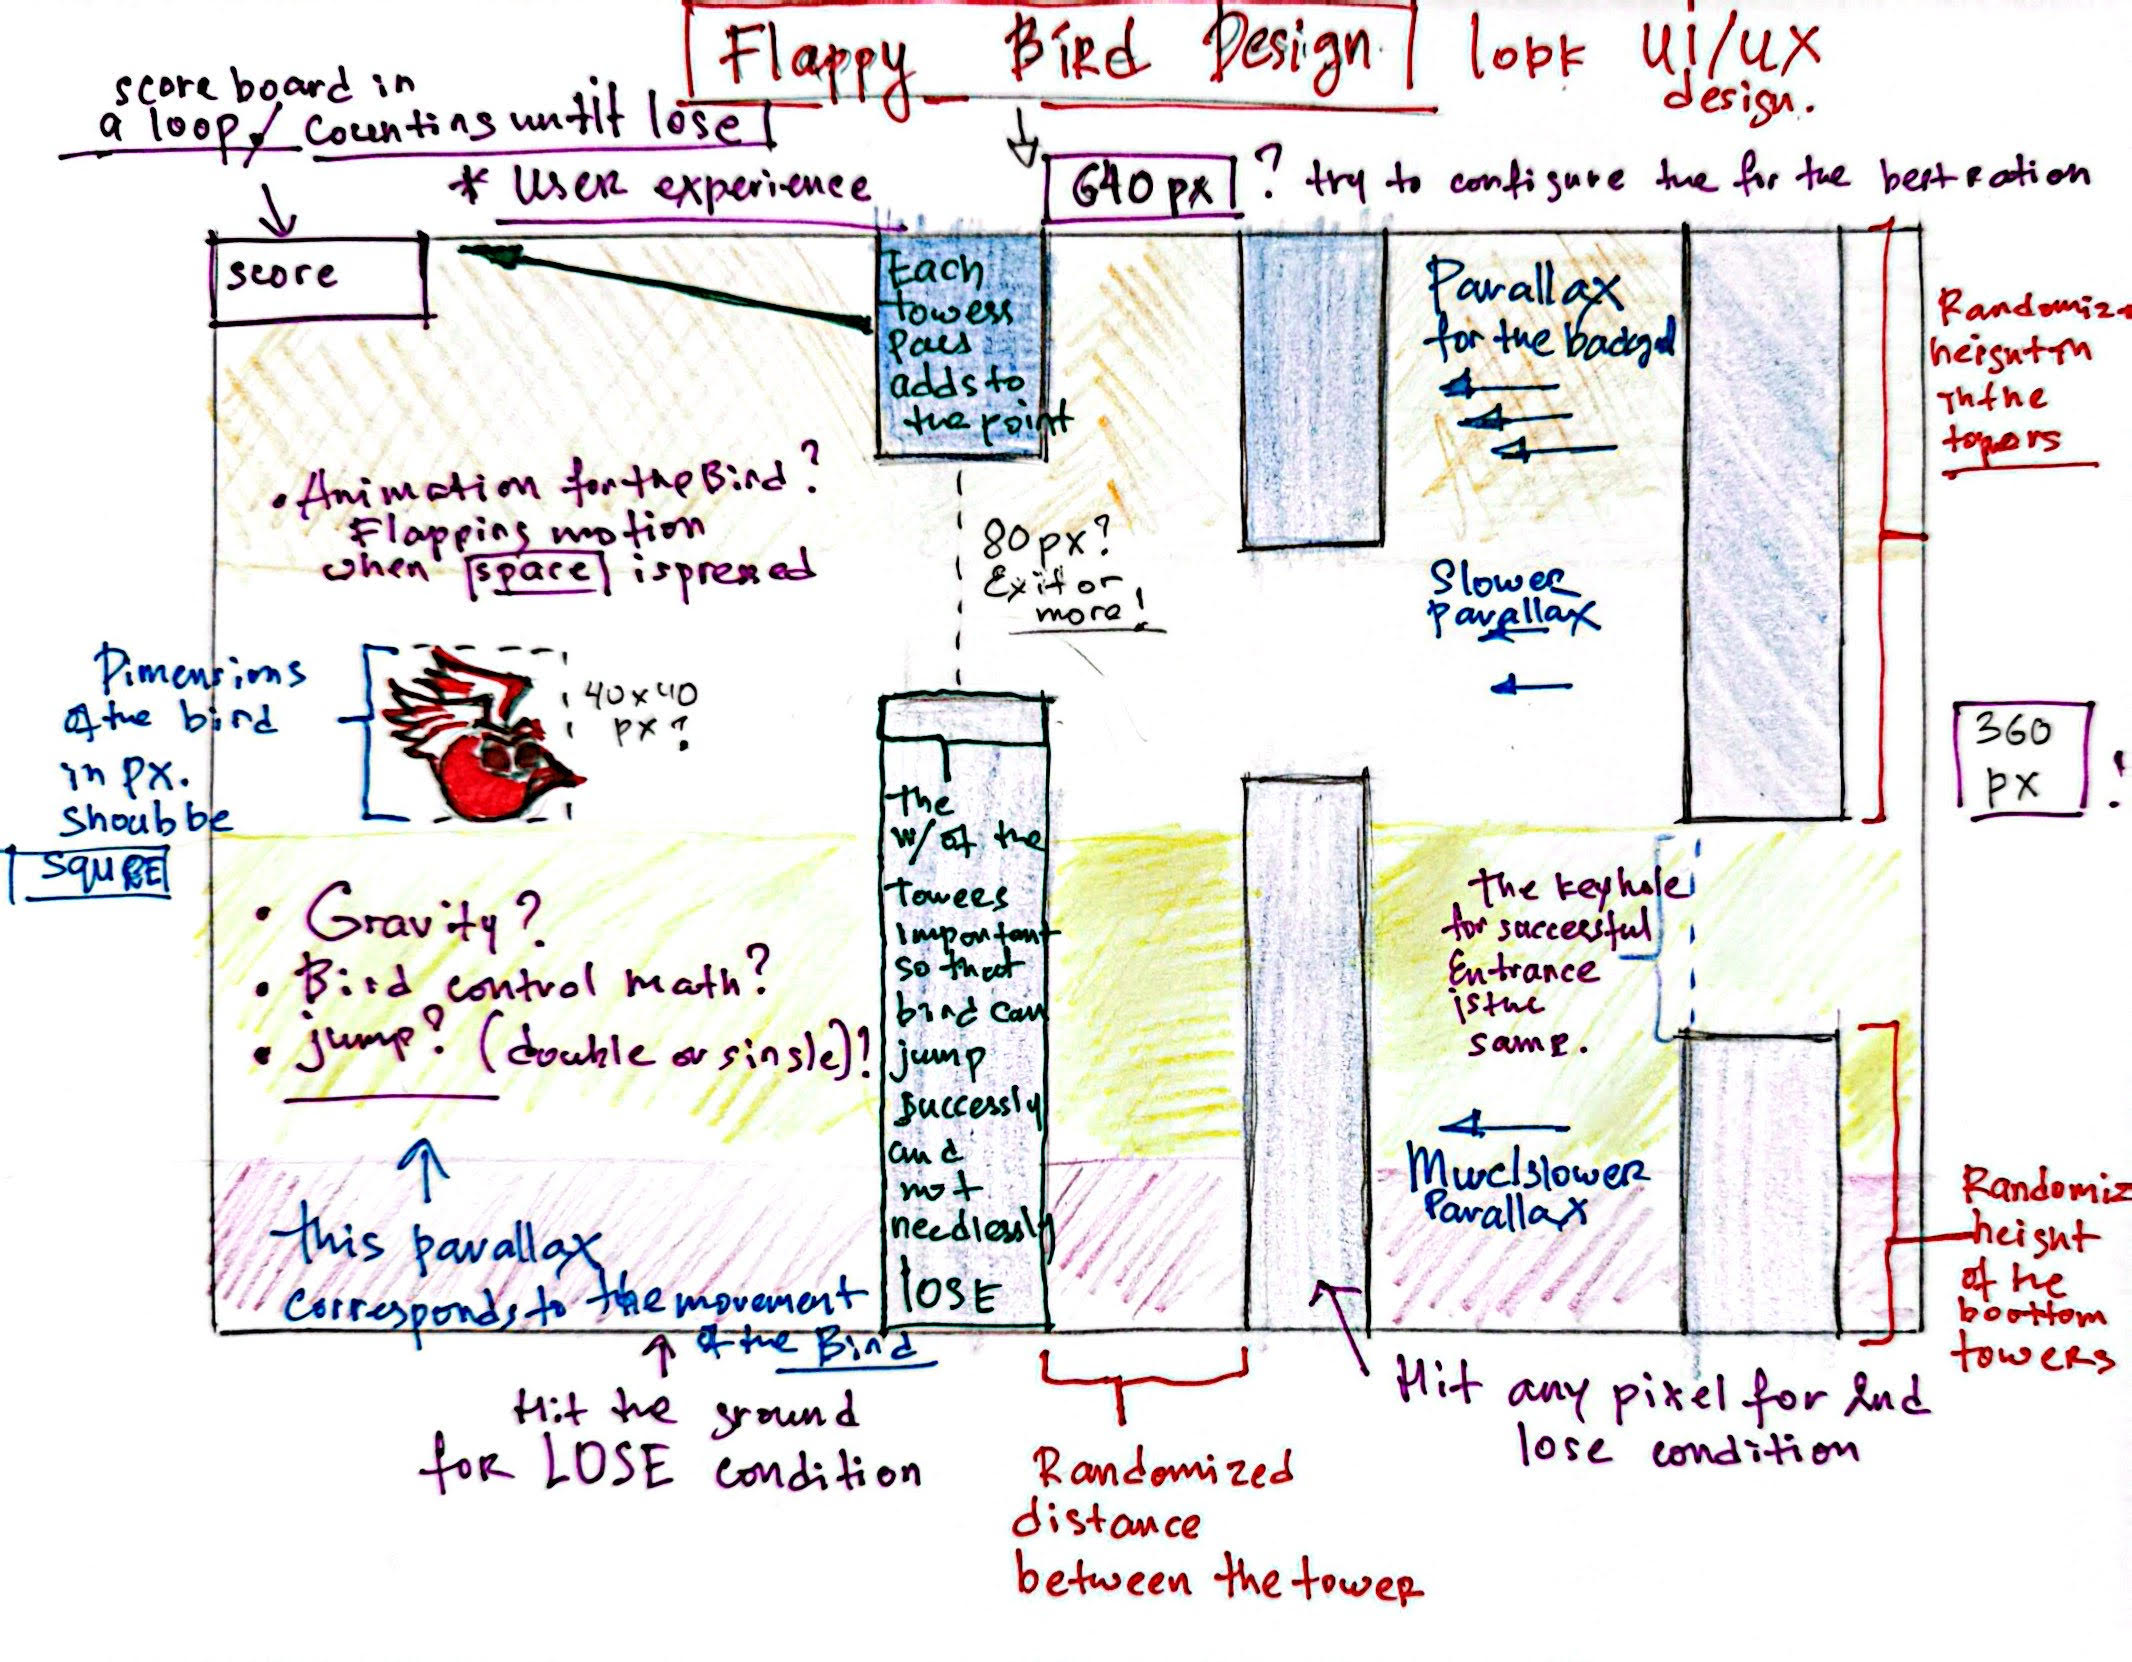 Flappy Bird Design look Ui/UX
design.
score board in
a loop / counting until lose
* User experience
640 px ? try to configure the for the best ration
score
Each
towess
paes
adds to
the point
Parallax
for the backgd
Randomiz
height in
in the
towers
• Animation for the Bird?
Flapping motion
when space is pressed
80 px?
Exit or
more!
Slower
parallax
Dimensions
of the bird
in px.
shoub be
SQURE
40 x 40
px?
360
px !
the
w/ of the
towees
important
so that
bird can
jump
successly
and
not
needlessly
LOSE
the keyhole
for successful
Entrance
is the
same.
• Gravity?
• Bird control math?
• jump? (double or single)!
Parallax
this parallax
corresponds to the movement
of the Bird
Randomiz
height
of he
boottom
towers
Hit the ground
for LOSE condition
Hit any pixel for and
lose condition
Randomized
distance
between the tower